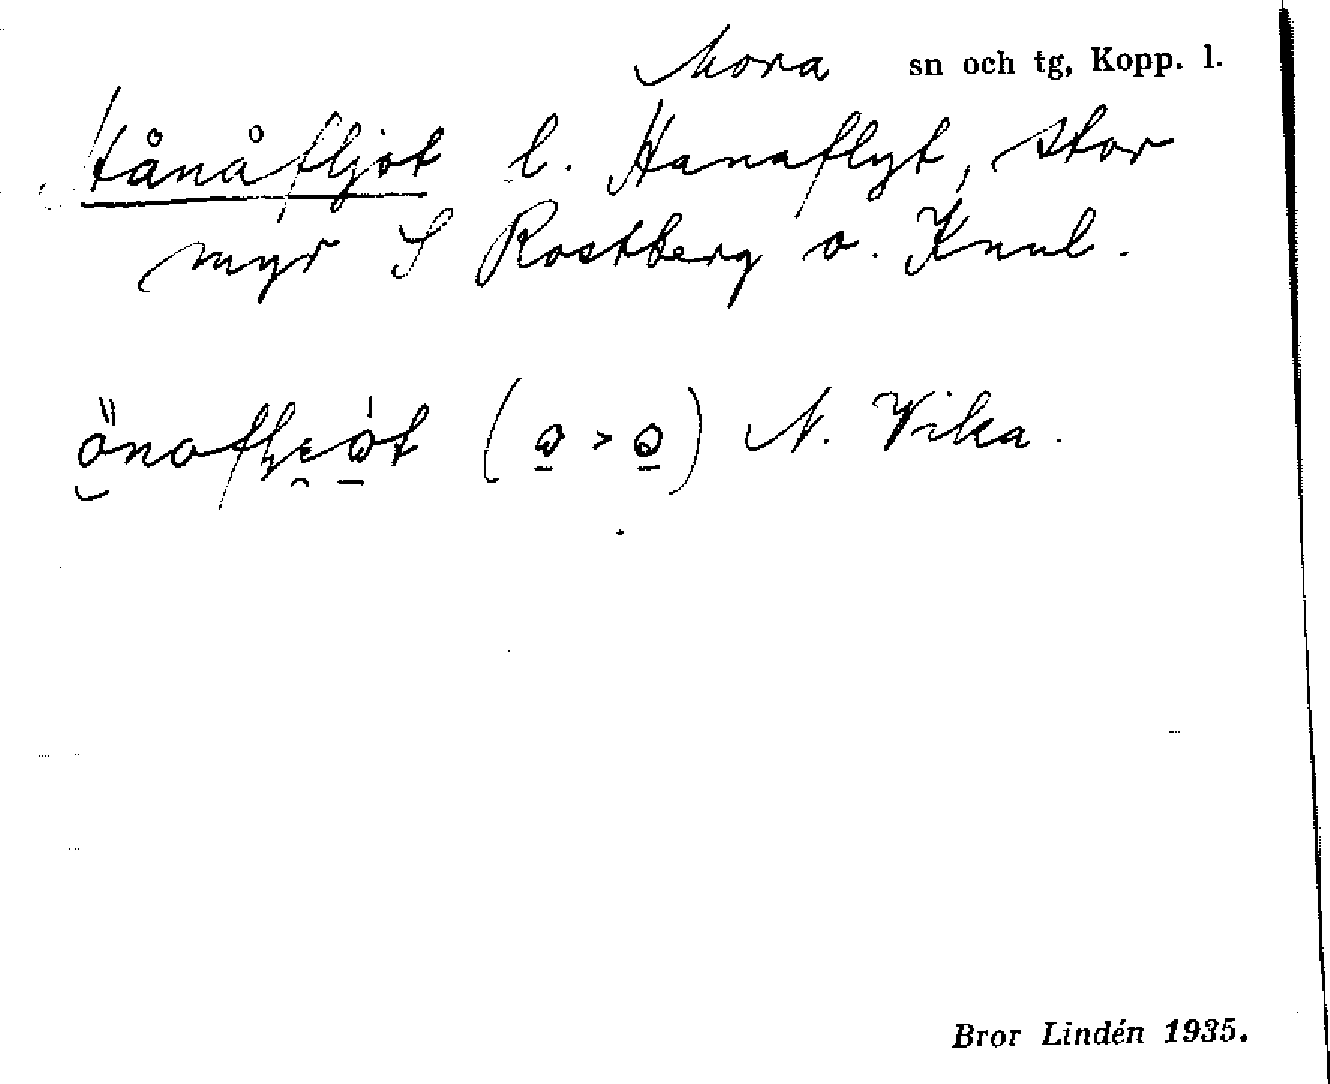 Mora sn och tg, Kopp. l.
Hånåfljot l. Hanaflyt, stor
myr S Rostberg o. Knul.
N. Vika.
Bror Lindén 1935.